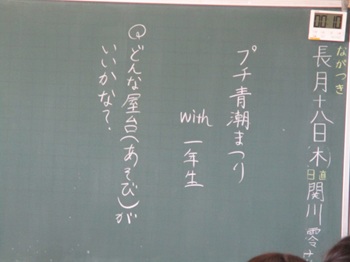 ながつき
長月十八日(木)
日直 関川 零
プチ青潮まつり
with 一年生
どんな屋台(あそび)が
いいかな?